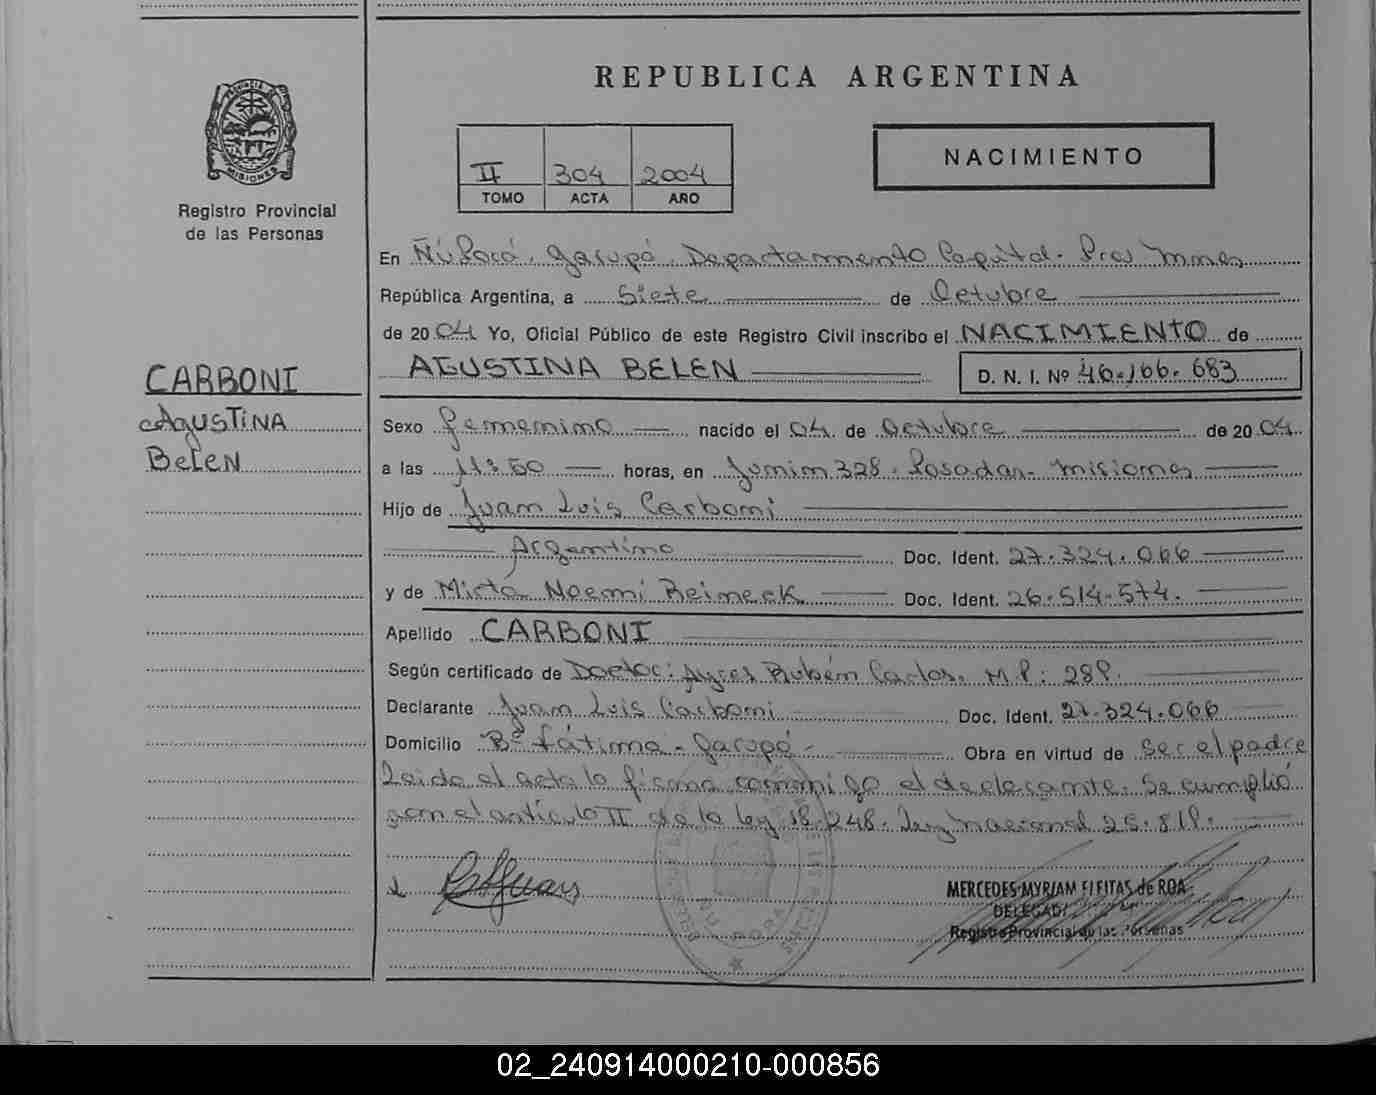 REPUBLICA ARGENTINA
PROVINCIA DE
MISIONES
Registro Provincial
de las Personas
II 304 2004
TOMO ACTA AÑO
NACIMIENTO
En Ñú Porá, Garupá, Departamento Capital. Prov Mnes
República Argentina, a Siete de Octubre
de 2004 Yo, Oficial Público de este Registro Civil inscribo el NACIMIENTO de
AGUSTINA BELEN D. N. I. Nº 46.166.683
CARBONI
Agustina
Belen
Sexo femenino nacido el 04 de Octubre de 2004
a las 11:50 horas, en Junin 328. Posadas. Misiones
Hijo de Juan Luis Carboni
Argentino Doc. Ident. 27.324.066
y de Mirta Noemi Reineck Doc. Ident. 26.514.574.
Apellido CARBONI
Según certificado de Doctor: Ayres Rubén Carlos. M.P: 289.
Declarante Juan Luis Carboni Doc. Ident. 27.324.066
Domicilio Bº Fátima - Garupá - Obra en virtud de ser el padre
Leida el acta la firma conmigo el declarante. Se cumplió
con el artículo II de la ley 18.248. Ley Nacional 25.819.
MERCEDES MYRIAM FLEITAS de ROA
Registro Provincial de las Personas
ÑU PORA
02_240914000210-000856